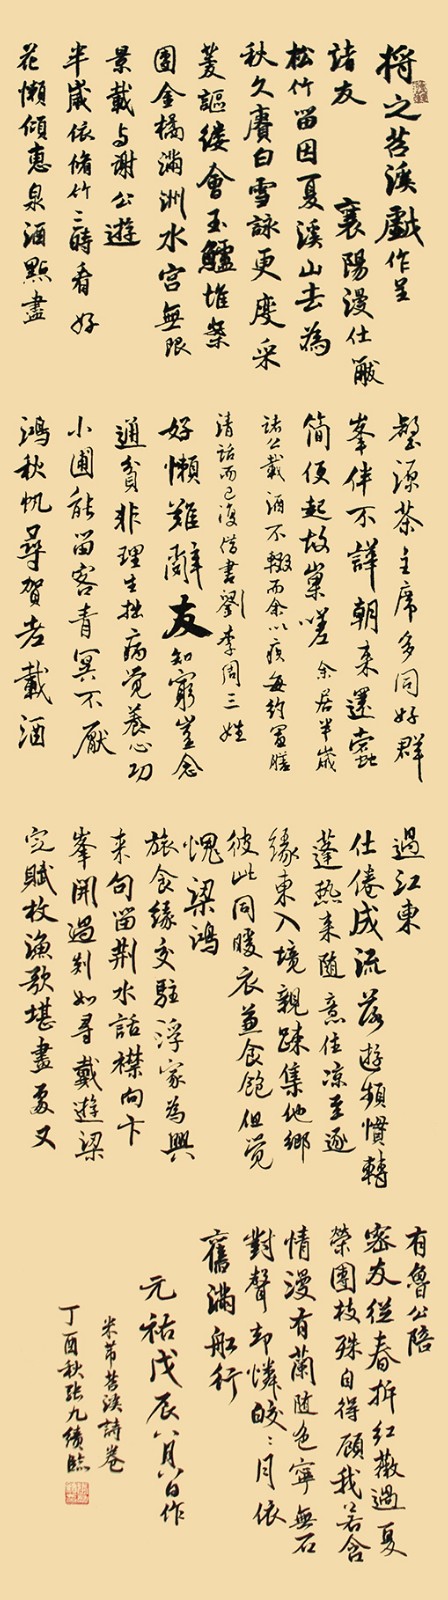 將之苕溪戲作呈
諸友　襄陽漫仕黻
松竹留因夏溪山去為
秋久賡白雪詠更度采
菱謳縷會玉鱸堆案
團金橘滿洲水宮無限
景載与謝公遊
半歲依脩竹三時看好
花懶傾惠泉酒點盡
壑源茶主席多同好群
峯伴不譁朝來還蠹
簡便起故巢嗟　余居半歲
諸公載酒不輟而余以疾每約置膳
清話而已復借書劉李周三姓
好懶難辭友知窮豈念
通貧非理生拙病覺養心功
小圃能留客青冥不厭
鴻秋帆尋賀老載酒
過江東
仕倦成流落遊頻慣轉
蓬熱來隨意住涼至逐
緣東入境親疎集他鄉
彼此同暖衣兼食飽但覺
愧梁鴻
旅食緣交駐浮家為興
來句留荊水話襟向卞
峯開過剡如尋戴遊梁
定賦枚漁歌堪畫處又
有魯公陪
密友從春拆紅薇過夏
榮團枝殊自得顧我若含
情漫有蘭隨色寧無石
對聲却憐皎〻月依
舊滿船行
元祐戊辰八月八日作
米芾苕溪詩卷
丁酉秋張九績臨